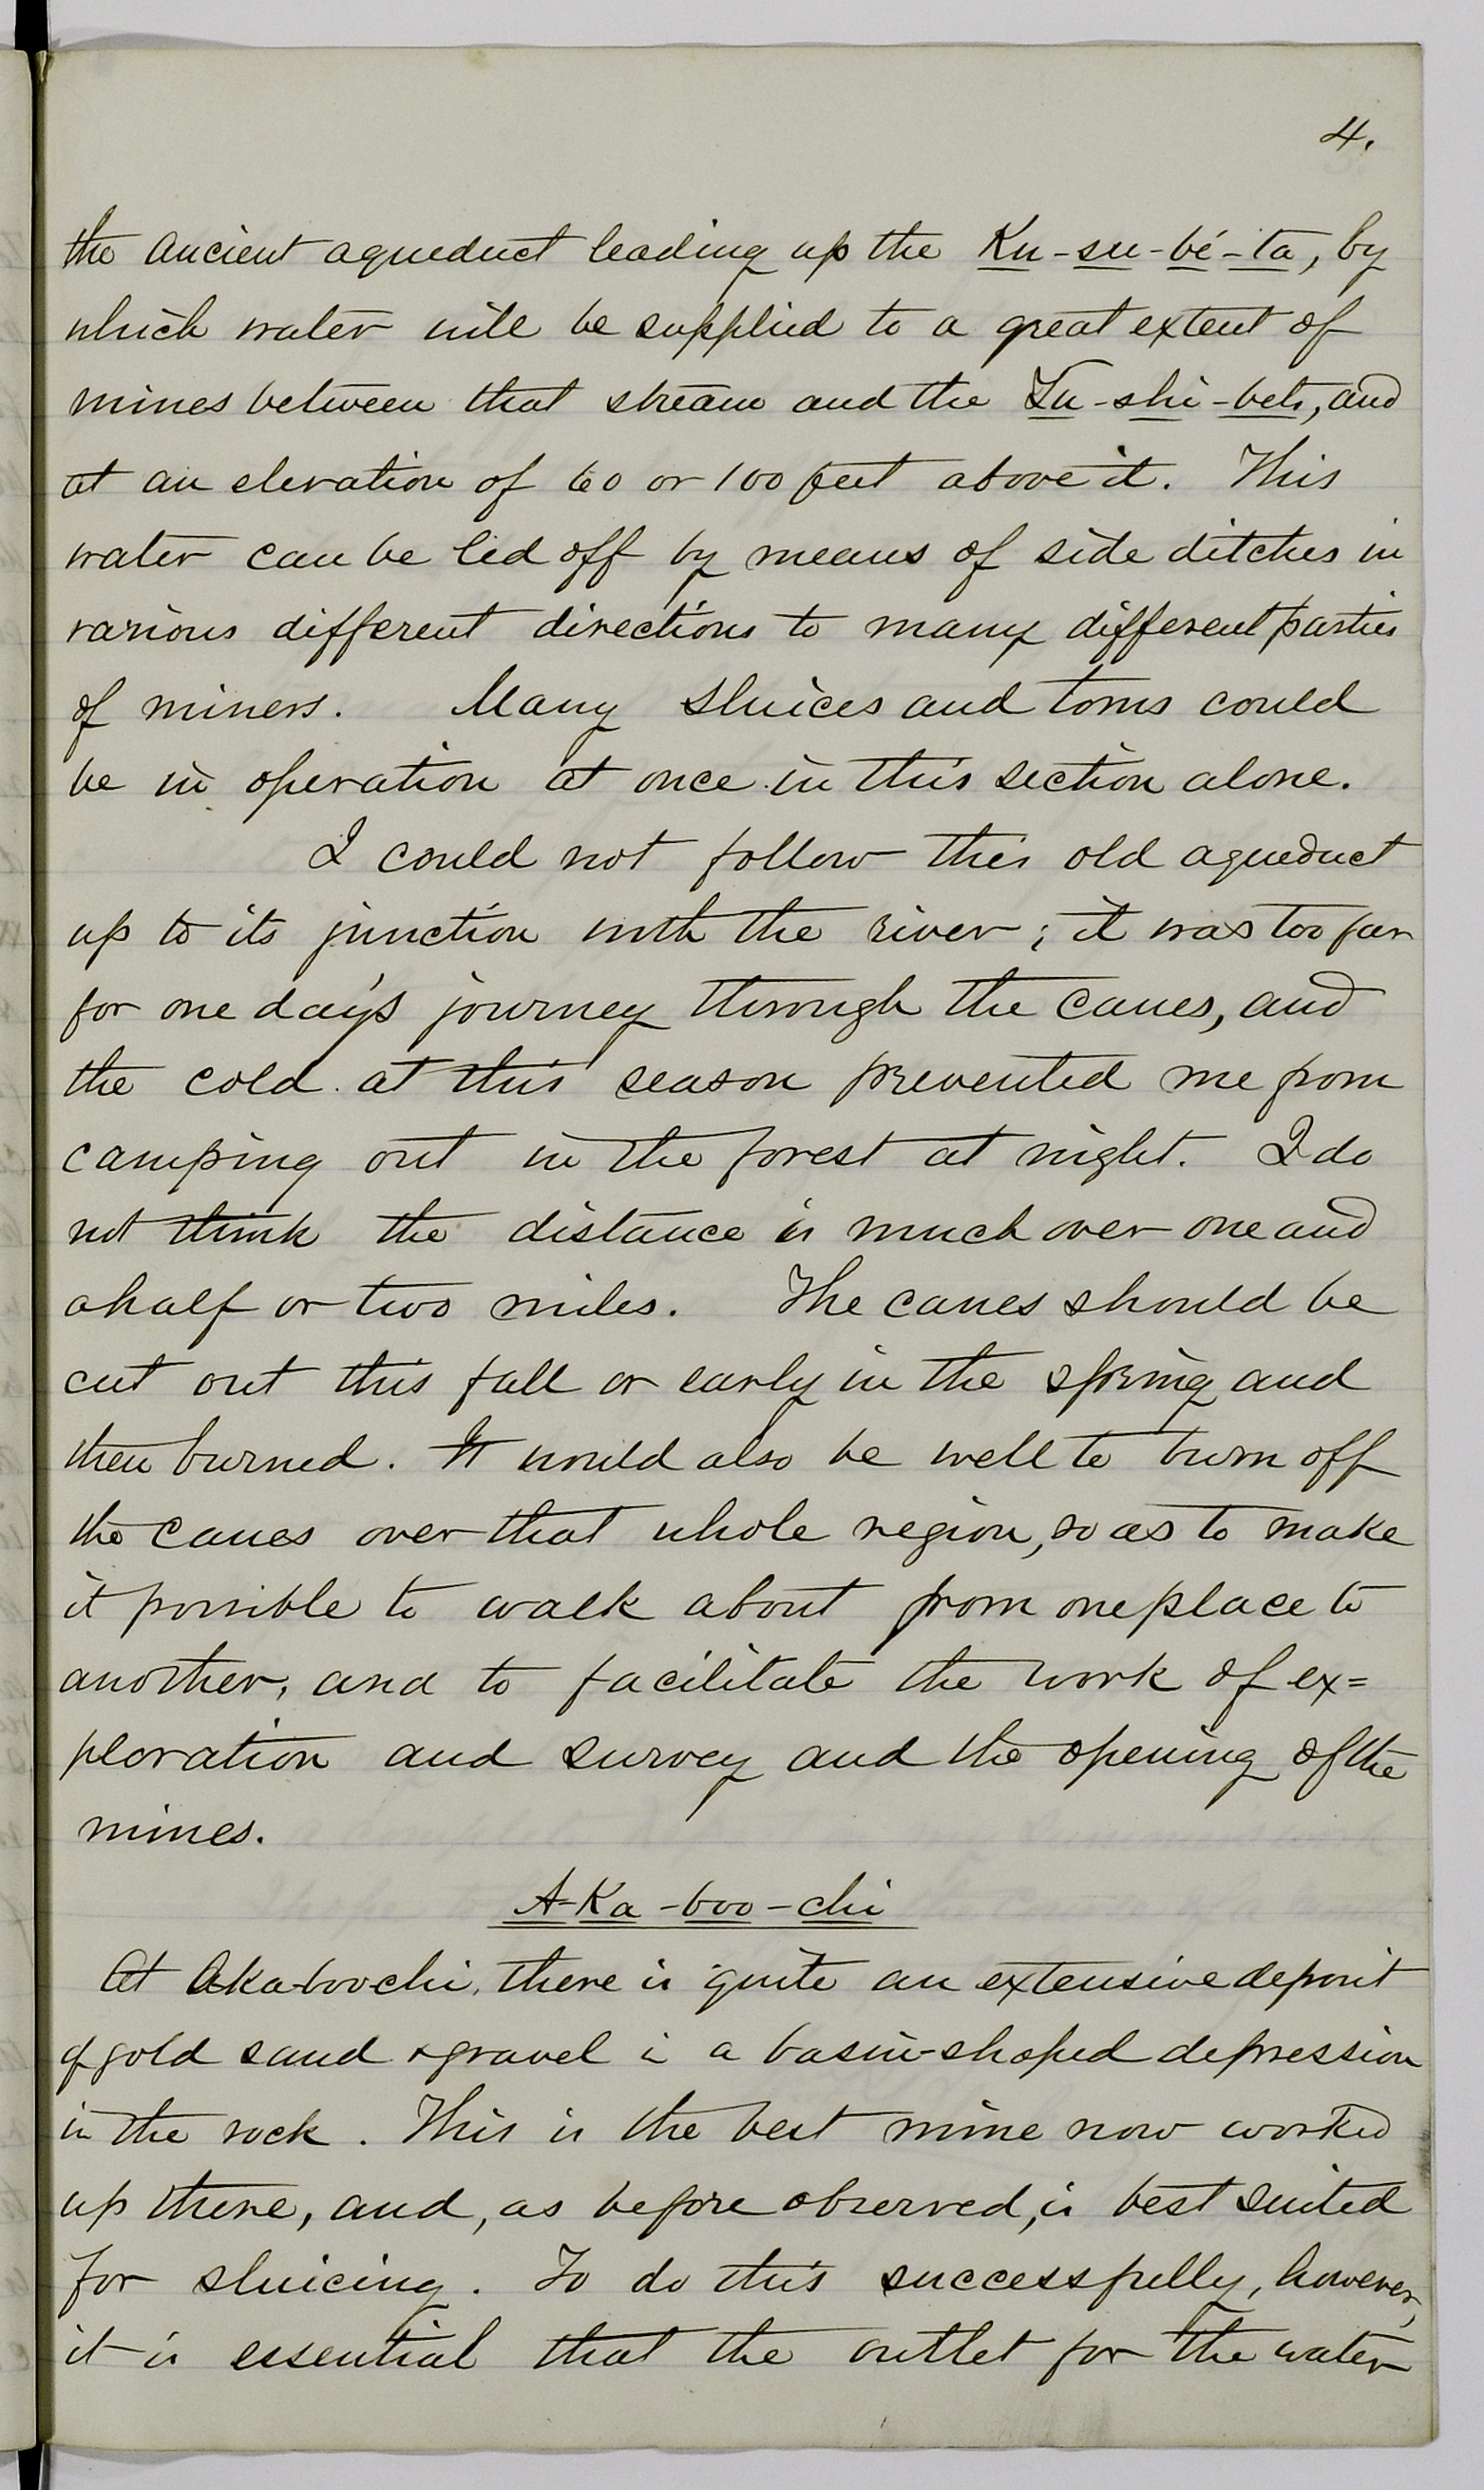 4.
the ancient aqueduct leading up the Ku-su-bé-ta, by
which water will be supplied to a great extent of
mines between that stream and the Tu-shi-bets, and
at an elevation of 60 or 100 feet above it. This
water can be led off by means of side ditches in
various different directions to many different parties
of miners. Many sluices and toms could
be in operation at once in this section alone.
I could not follow this old aqueduct
up to its junction with the river; it was too far
for one day's journey through the canes, and
the cold at this season prevented me from
camping out in the forest at night. I do
not think the distance is much over one and
a half or two miles. The canes should be
cut out this fall or early in the spring and
then burned. It would also be well to burn off
the canes over that whole region, so as to make
it possible to walk about from one place to
another, and to facilitate the work of ex=
ploration and survey and the opening of the
mines.
A-Ka-boo-chi
At Akaboochi, there is quite an extensive deposit
of gold sand & gravel i a basin-shaped depression
in the rock. This is the best mine now worked
up there, and, as before observed, is best suited
for sluicing. To do this successfully, however,
it is essential that the outlet for the water